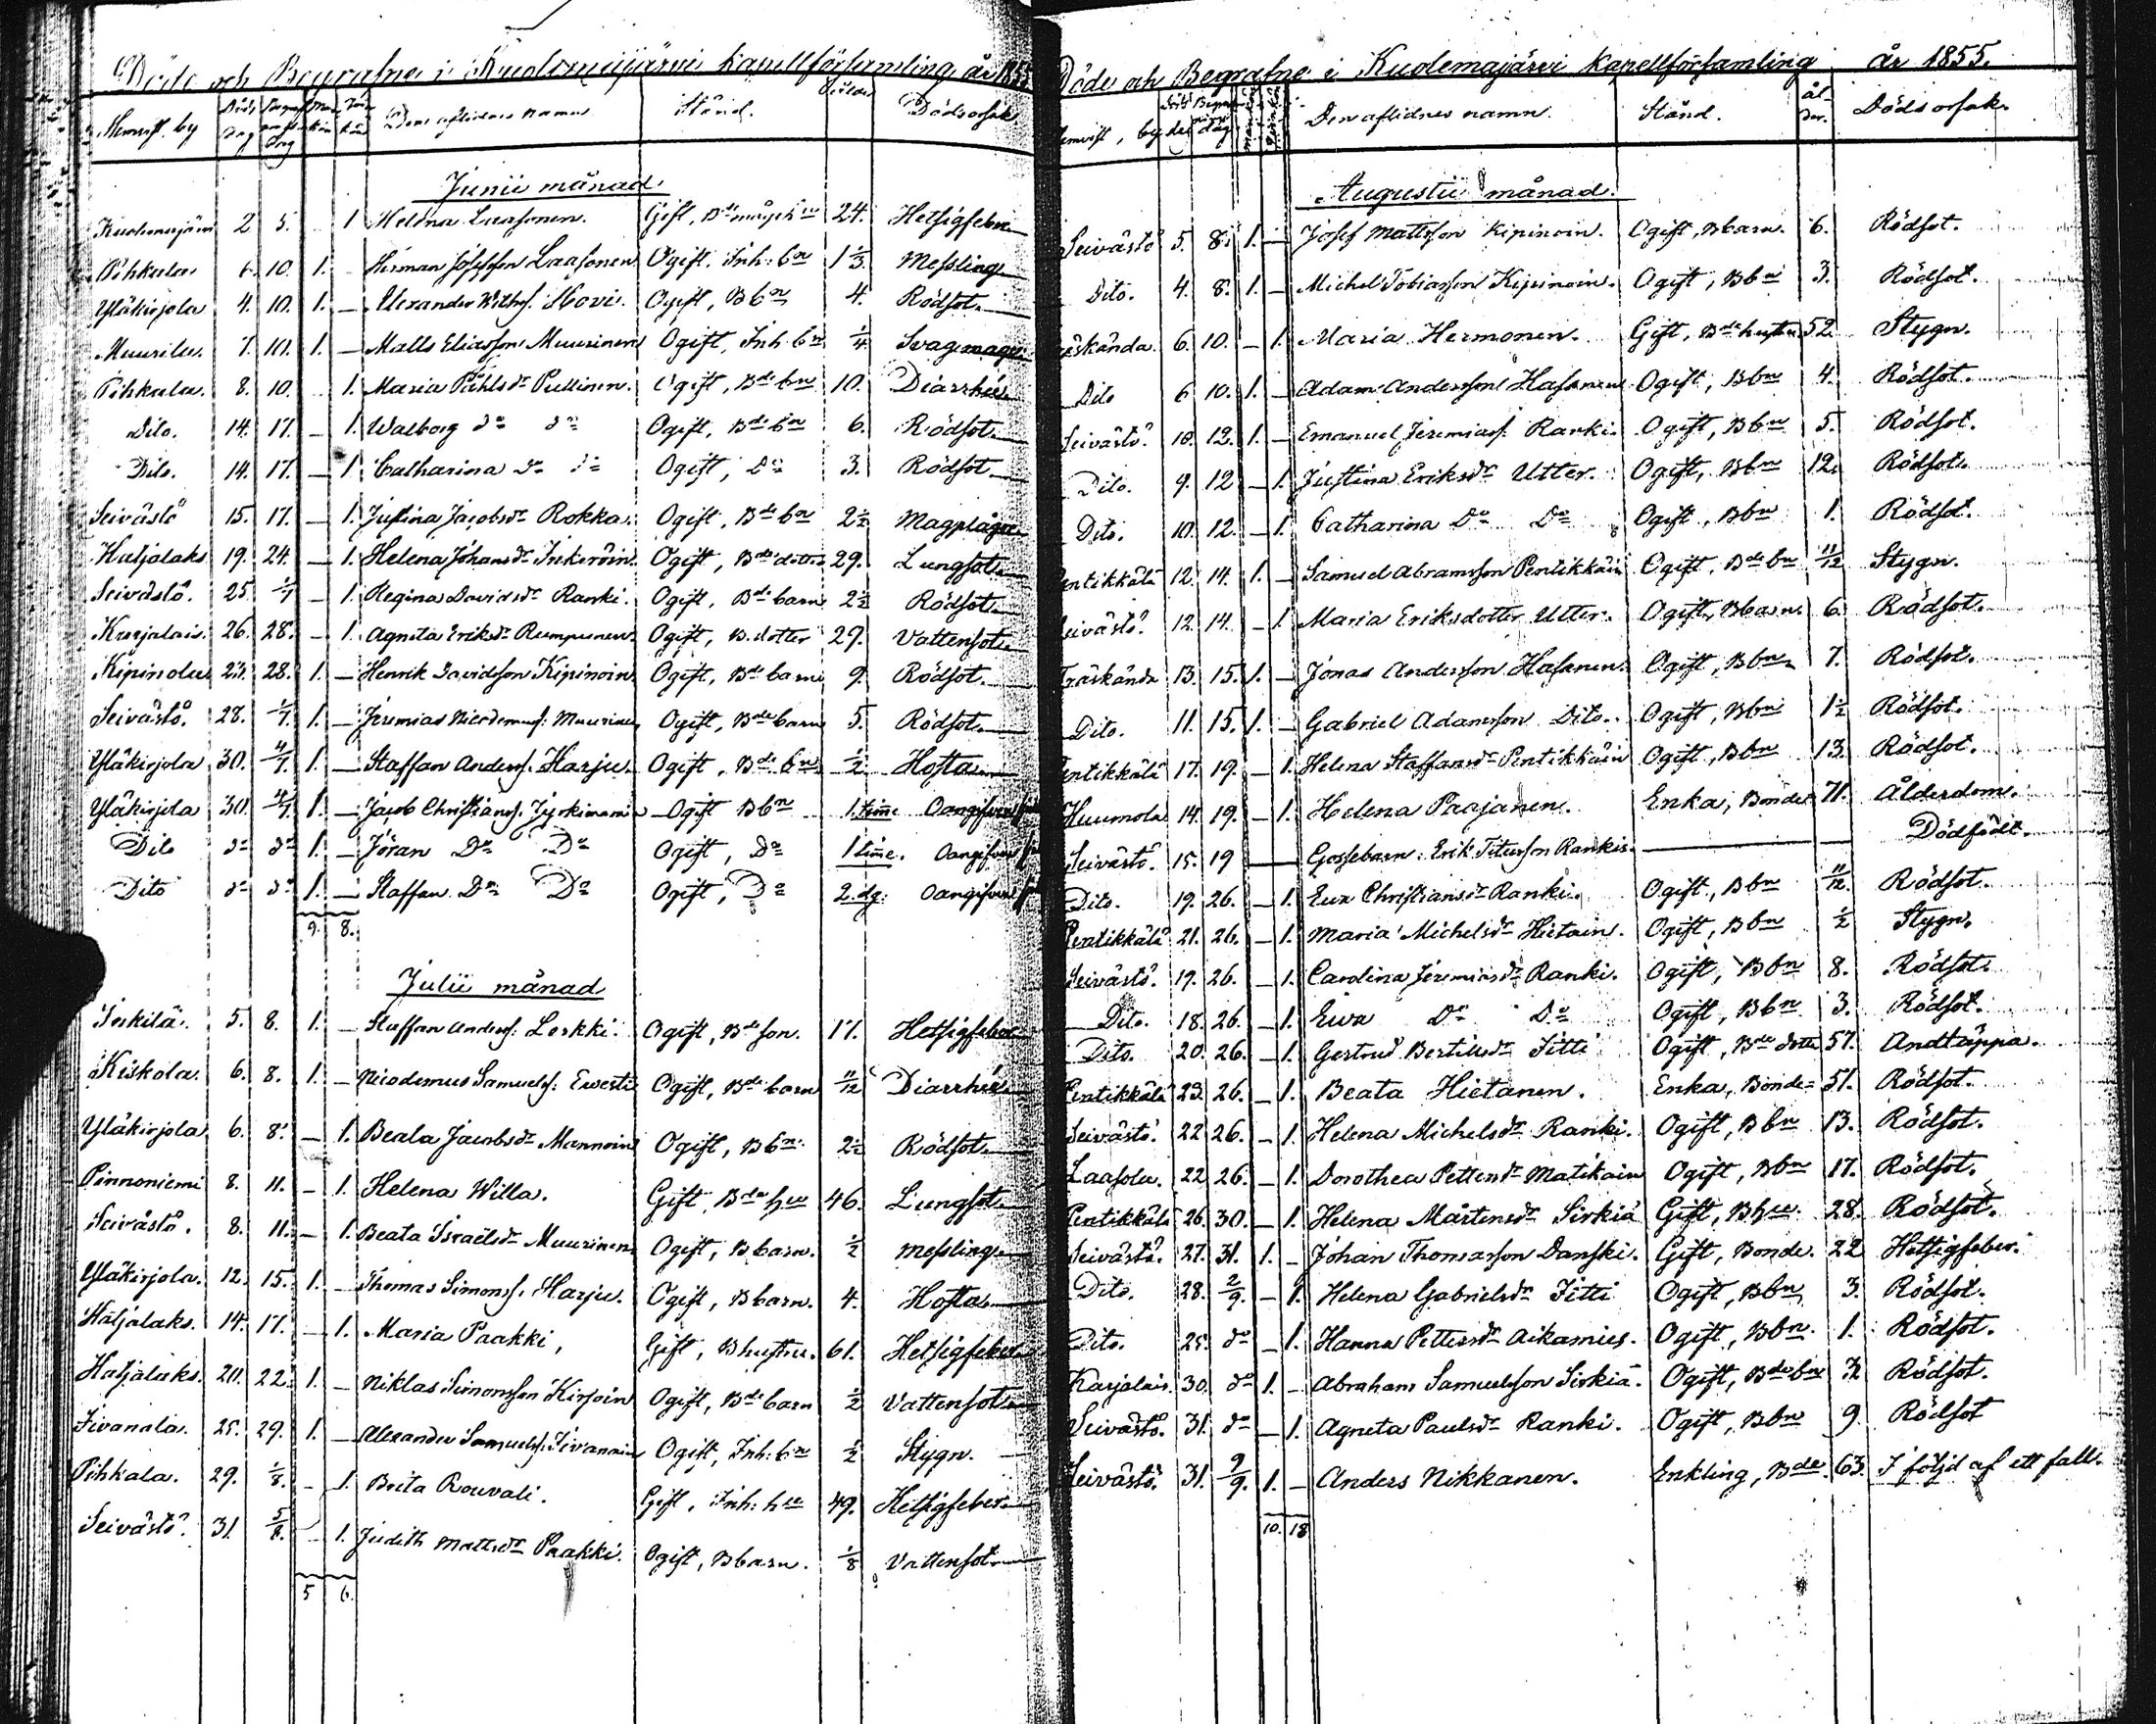 Döde och Begrafne i Kuolemajärvi kapellförsamling år 1855
Hemvist. by Döds dag Begrafn. dag Den aflidnes namn Stånd. Ålder Dödsorsak
Junii månad.
Kuolemajärvi 2 5. 1 Helena Laasonen. Gift, Bde mågs hu 24. Hetsigfeber
Pihkala 6. 10. 1. Herman Josefsson Laasonen Ogift, Inh: bn 1 1/3 Messling
Yläkirjola 4. 10. 1. Alexander Wilhs. Hovi. Ogift, B bn 4. Rödsot.
Muurila. 7. 10. 1. Matts Eliasson Muurinen Ogift, Inh bn 1/4 Svag mage
Pihkala. 8. 10. 1. Maria Påhlsdr Pullinen. Ogift, Bde bn 10. Diarrhée
Dito. 14. 17. 1. Walborg do do Ogift, Bde bn 6. Rödsot.
Dito. 14. 17. 1 Catharina Do do Ogift, Do 3. Rödsot
Seivästö 15. 17. 1. Justina Jacobsdr Rokka. Ogift, Bde bn 2 1/2 Magplåga
Hatjalaks 19. 24. 1. Helena Johansdr Inkeröin Ogift, Bde dotter 29. Lungsot.
Seivästö. 25. 1/7 1. Regina Davidsdr Ranki. Ogift, Bde barn 2 1/2 Rödsot.
Karjalais. 26. 28. 1. Agneta Eriksdr Rumpunen. Ogift, B. dotter 29. Vattensot.
Kipinola 23. 28. 1. Henrik Davidsson Kipinoin Ogift, Bde barn 9. Rödsot.
Seivästö. 28. 1/7. 1. Jeremias Nicodemuss: Muurinen Ogift, Bde barn 5. Rödsot.
Yläkirjola 30. 4/7. 1. Staffan Anderss. Harju. Ogift, Bde bn 1/2 Hosta.
Yläkirjola 30. 4/7 1. Jacob Christianss. Ogift B bn 1 time Oangifven
Dito do do 1. Jöran Do Do Ogift, Do 1 time. Oangifven
Dito do do 1. Staffan Do Do Ogift, Do 2 dg: Oangifven
9. 8.
Julii månad
Inkilä. 5. 8. 1. Staffan Anderss: Leskki. Ogift, Bde son. 17. Hetsigfeber
Kiskola. 6. 8. 1. Nicodemus Samuelss: Ewesti Ogift, Bde barn 11/12 Diarrhée
Yläkirjola 6. 8. 1. Beata Jacobsdr Mannoin Ogift, B bn 2 1/2 Rödsot.
Pinnoniemi 8. 11. 1. Helena Willa. Gift, Bde hu 46. Lungsot.
Seivästö. 8. 11. 1. Beata Israelsdr Muurinen Ogift, B barn. 1/2 Messling.
Yläkirjola. 12. 15. 1. Thomas Simonss. Harju. Ogift, B barn. 4. Hosta.
Hatjalaks. 14. 17. 1. Maria Paakki, Gift, B hustru. 61. Hetsigfeber
Hatjalaks. 20. 22. 1. Niklas Simonsson Kirjoin Ogift, Bde barn 1/2 Vattensot.
Iivanala. 25. 29. 1. Alexander Samuelss: Iivanain Ogift, Inh: bn 1/2 Stygn.
Pihkala. 29. 1/8. 1. Brita Rouvali. Gift, Inh: hu 49. Hetsigfeber.
Seivästö. 31. 5/8. 1. Judith Mattsdr Paakki. Ogift, B barn. 1/8 Vattensot.
5 6.
Döde och Begrafne i Kuolemajärvi Kapellförsamling år 1855.
Hemvist, by Döds Begrafn. dag Den aflidnes namn. Stånd. ål-der. Dödsorsak.
Augustii månad.
Seivästö 5. 8. 1. Josef Mattsson Kipinoin. Ogift, B barn. 6. Rödsot.
Dito. 4. 8. 1. Michel Tobiasson Kipinoin. Ogift, B bn 3. Rödsot.
Träskända. 6. 10. 1. Maria Hermonen. Gift, Bde hustru 52. Stygn.
Dito 6. 10. 1. Adam Andersson Hasanen Ogift, B bn 4. Rödsot.
Seivästö. 10. 12. 1. Emanuel Jeremiass. Ranki. Ogift, B bn 5. Rödsot.
Dito. 9. 12 1. Justina Eriksdr Utter. Ogift, B bn 12. Rödsot.
Dito. 10. 12. 1. Catharina Do Do Ogift, B bn 1. Rödsot.
Pentikkälä 12. 14. 1. Samuel Abramsson Pentikkäin Ogift, Bde bn 11/12 Stygn.
Seivästö. 12. 14. 1 Maria Eriksdotter Utter. Ogift, B barn. 6. Rödsot.
Träskända 13. 15. 1. Jonas Andersson Hasanen. Ogift, B bn 7. Rödsot.
Dito. 11. 15. 1. Gabriel Adamsson Dito. Ogift, B bn 1 1/2 Rödsot.
Pentikkälä 17. 19. 1. Helena Staffansdr Pentikkäin Ogift, B bn 13. Rödsot.
Huumola 14. 19. 1. Helena Paajanen. Enka, Bonde 71. Ålderdom.
Seivästö. 15. 19 Gossebarn. Erik Titusson Rankis. Dödfödt.
Dito. 19. 26. 1. Eva Christiansdr Ranki. Ogift, B bn 11/12. Rödsot.
Pentikkälä 21. 26. 1. Maria Michelsdr Hietain. Ogift, B bn 1/2 Stygn.
Seivästö. 19. 26. 1. Carolina Jeremiasdr Ranki. Ogift, B bn 8. Rödsot.
Dito. 18. 26. 1. Ewa Do Do Ogift, B bn 3. Rödsot.
Dito. 20. 26. 1. Gertrud Bertilsdr Titti Ogift, Bde dotter 57. Andtäppa.
Pentikkälä 23. 26. 1. Beata Hietanen. Enka, Bonde- 51. Rödsot.
Seivästö. 22 26. 1. Helena Michelsdr Ranki. Ogift, B bn 13. Rödsot.
Laasola. 22. 26. 1. Dorothea Pettersdr Matikain Ogift, B bn 17. Rödsot.
Pentikkälä 26. 30. 1. Helena Mårtensdr Sirkiä Gift, B hu. 28. Rödsot.
Seivästö. 27. 31. 1. Johan Thomasson Danski. Gift, Bonde. 22 Hetsigfeber.
Dito. 28. 2/9. 1. Helena Gabrielsdr Titti Ogift, B bn 3. Rödsot.
Dito. 25. do 1. Hanna Pettersdr Aikamies. Ogift, B bn. 1. Rödsot.
Karjalais 30. do 1. Abraham Samuelsson Sirkiä. Ogift, Bde bn Rödsot.
Seivästö. 31. do 1. Agneta Paulsdr Ranki. Ogift, B bn 9. Rödsot
Seivästö. 31. 9/9. 1. Anders Nikkanen. Enkling, Bde 63. I följd af ett fall.
10. 18